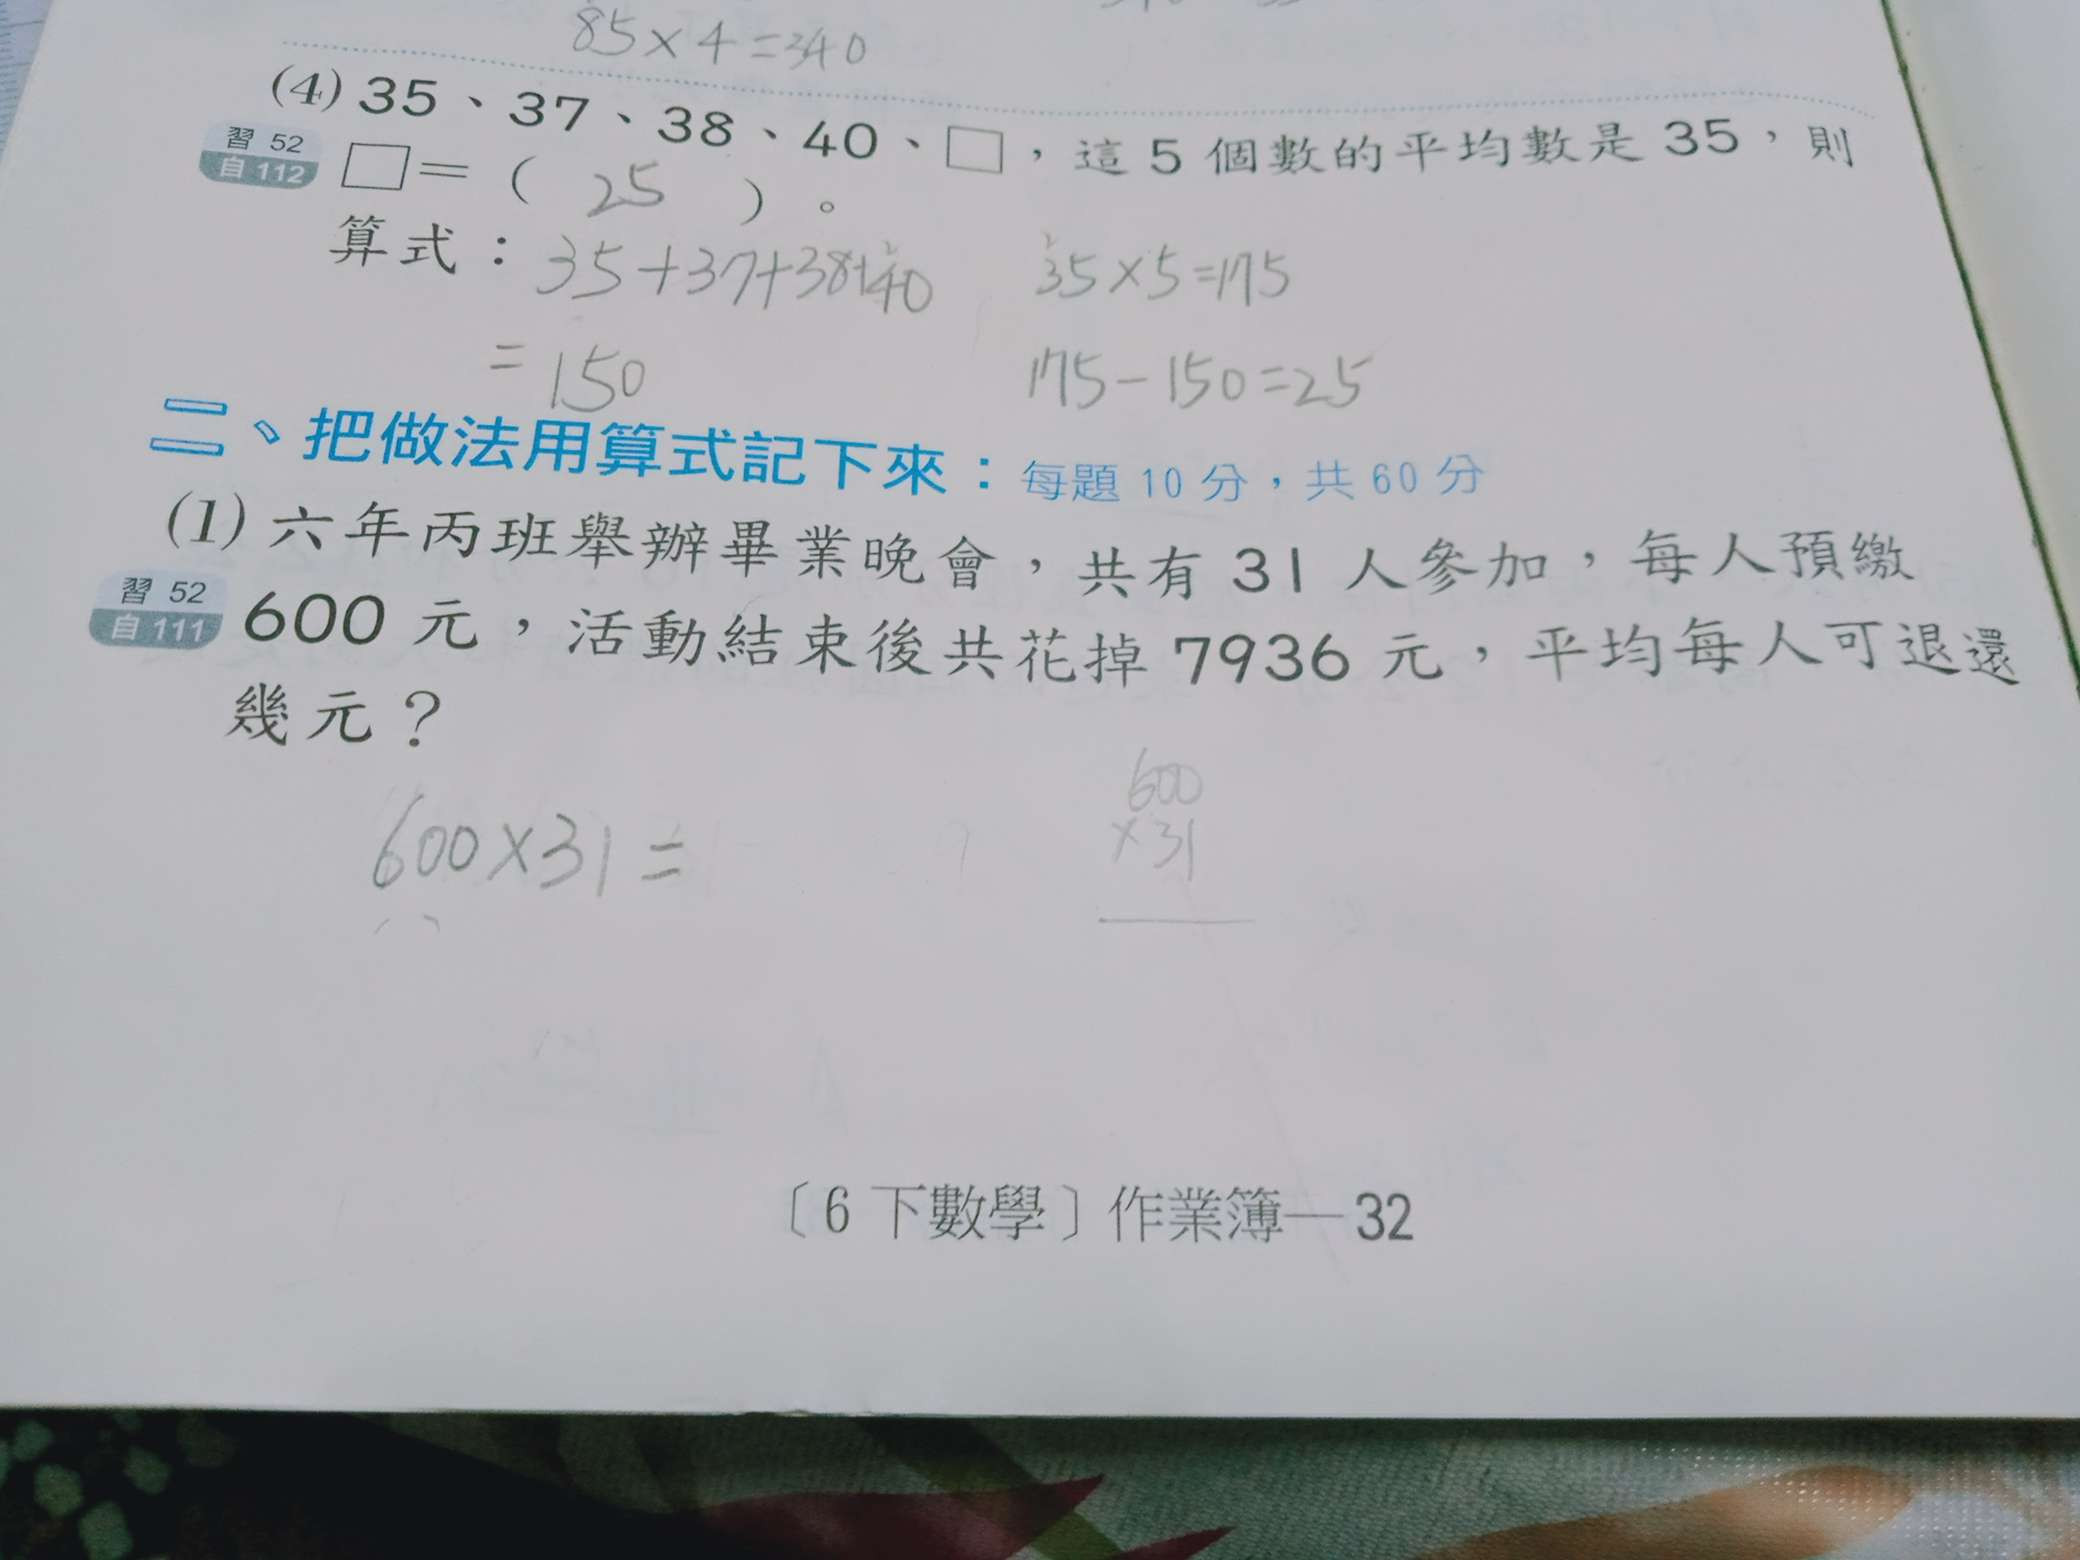 85×4=340
(4) 35、37、38、40、□，這5個數的平均數是35，則
習 52
自 112
□=（ 25 ）。
算式：35+37+38+40 35×5=175
=150 175-150=25
二、把做法用算式記下來：每題10分，共60分
(1) 六年丙班舉辦畢業晚會，共有31人參加，每人預繳
習 52
自 111
600元，活動結束後共花掉7936元，平均每人可退還
幾元？
600
600×31= ×31
〔6下數學〕作業簿—32